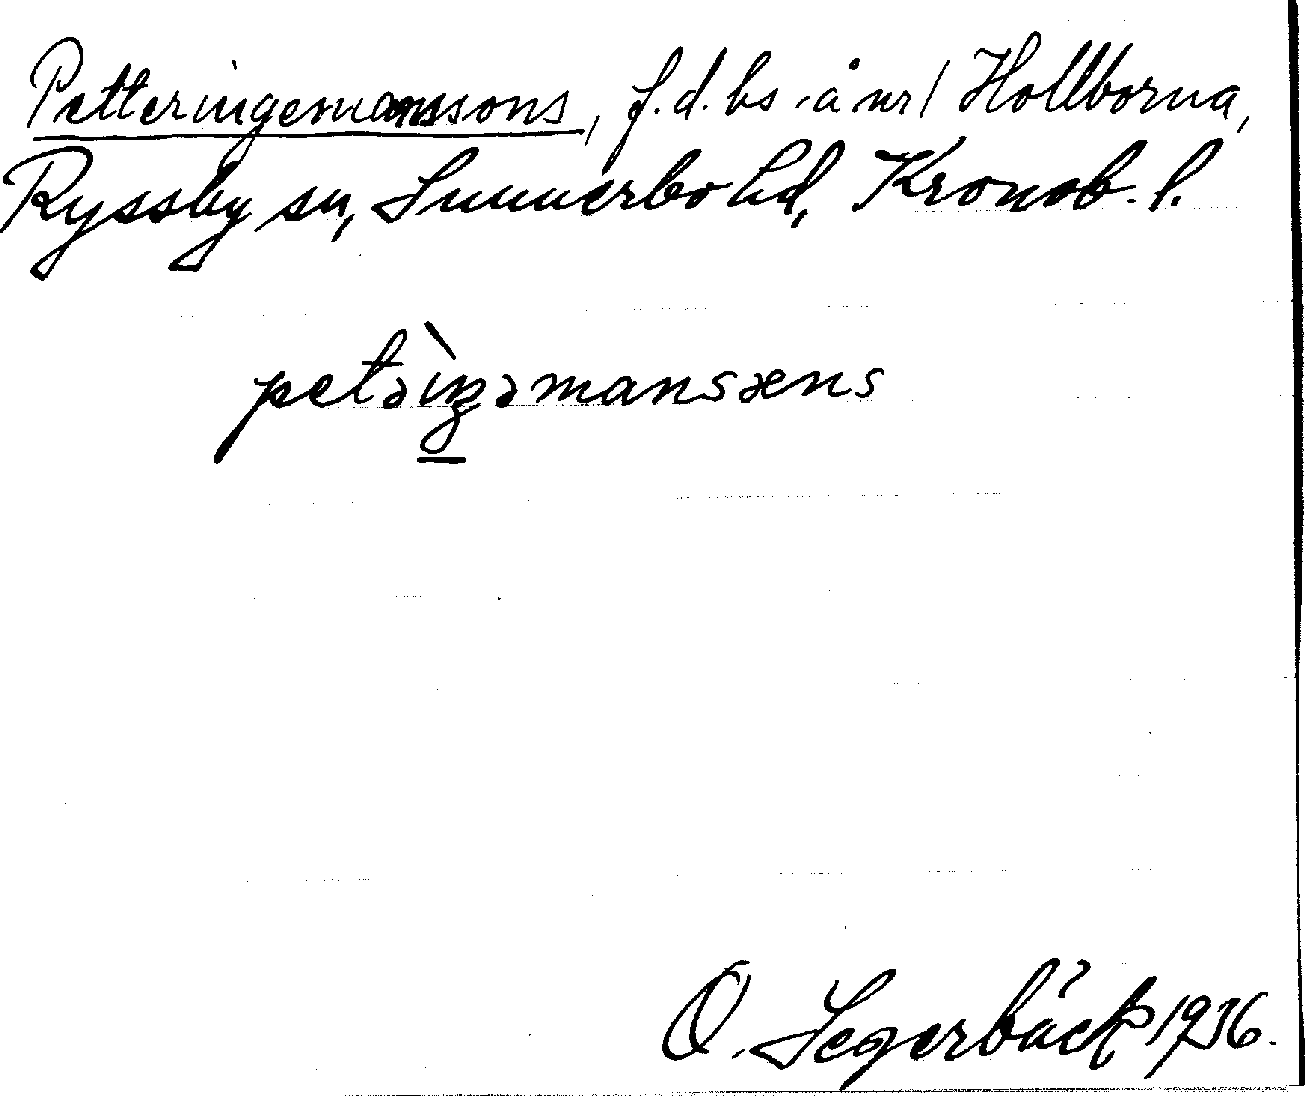 Petteringemanssons, f.d. bs å nr 1 Hollborna,
Ryssby sn, Sunnerbo hd, Kronob. l.
petəìŋəmansæns
O. Segerbäck 1936.